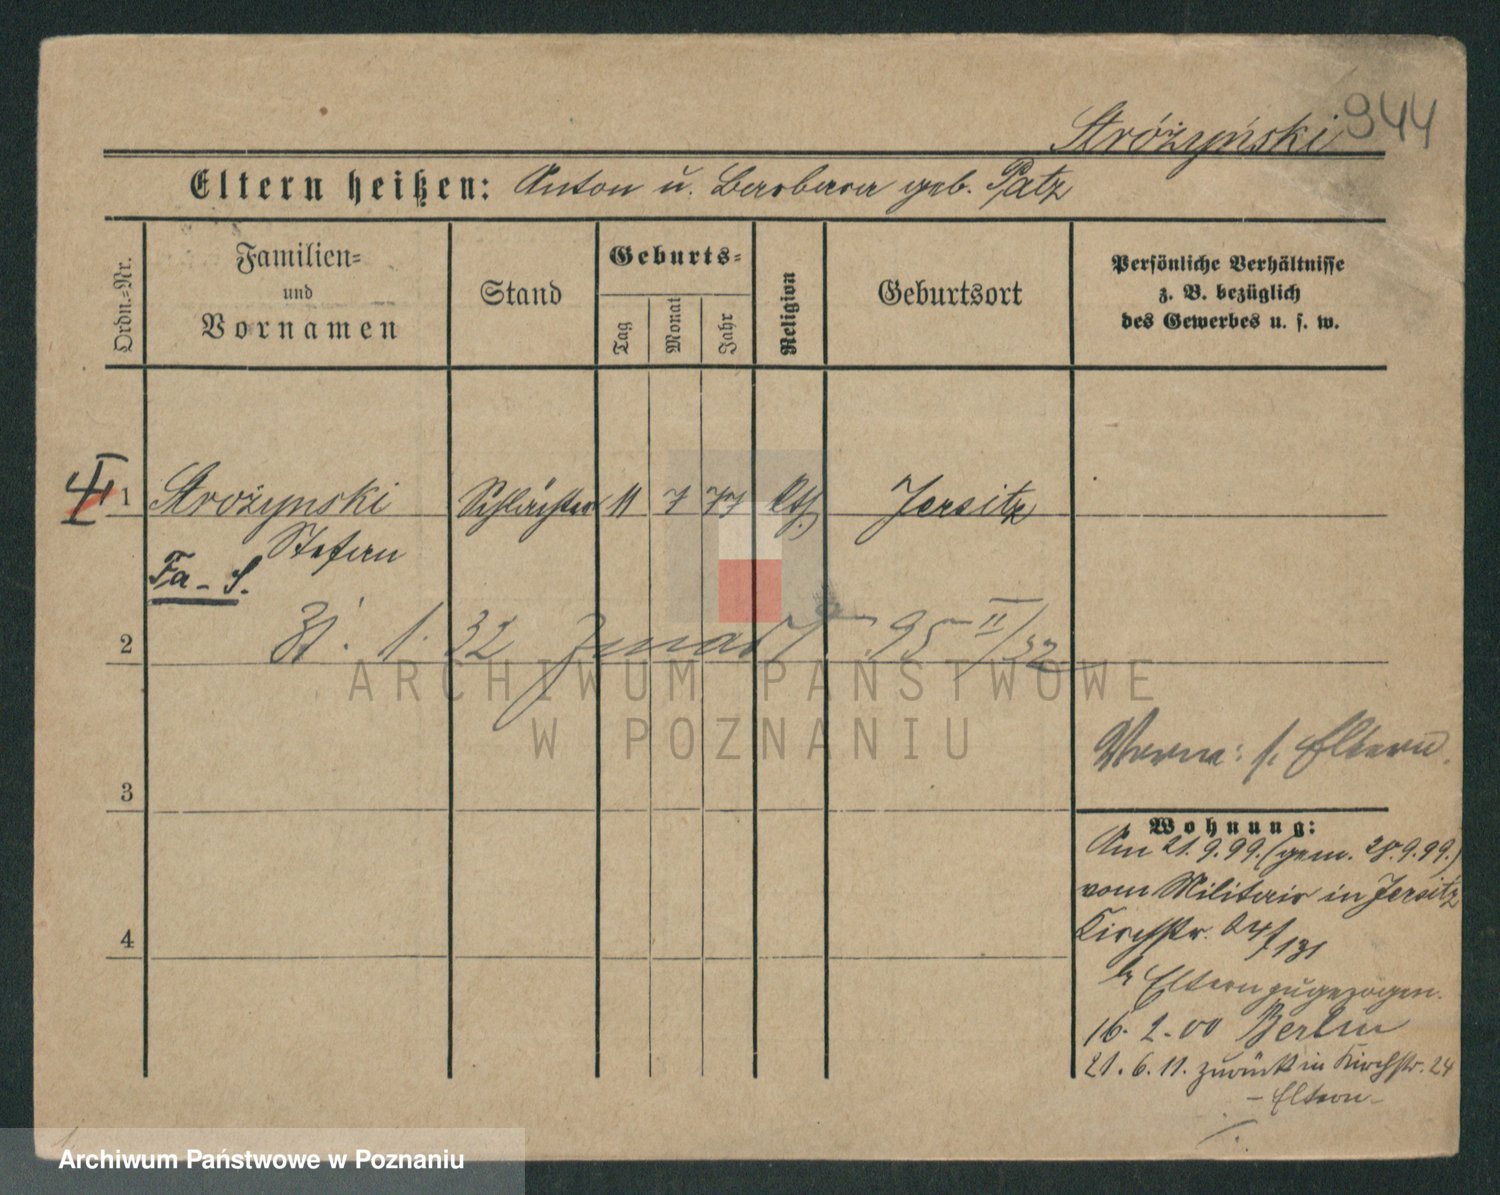 944
Stróżyński
Eltern heißen: Anton u. Barbara geb. Patz
Ordn.=Nr.
Familien=
und
Vornamen
Stand
Geburts=
Tag
Monat
Jahr
Religion
Geburtsort
Persönliche Verhältnisse
z. B. bezüglich
des Gewerbes u. s. w.
1 Strożynski Schlächter 11 7 77 kth. Jersitz
Stefan
Fa - S.
2
31. 1. 32 95 II/32
ARCHIWUM PAŃSTWOWE
W POZNANIU
s. Eltern.
3
Wohnung:
Am 21.9.99. (gem. 28.9.99.)
vom Militair in Jersitz
Kirchstr. 24/131
4
Eltern zugezogen.
16. 2. 00 Berlin
21. 6. 11. zurück in Kirchstr. 24
- Eltern -
Archiwum Państwowe w Poznaniu